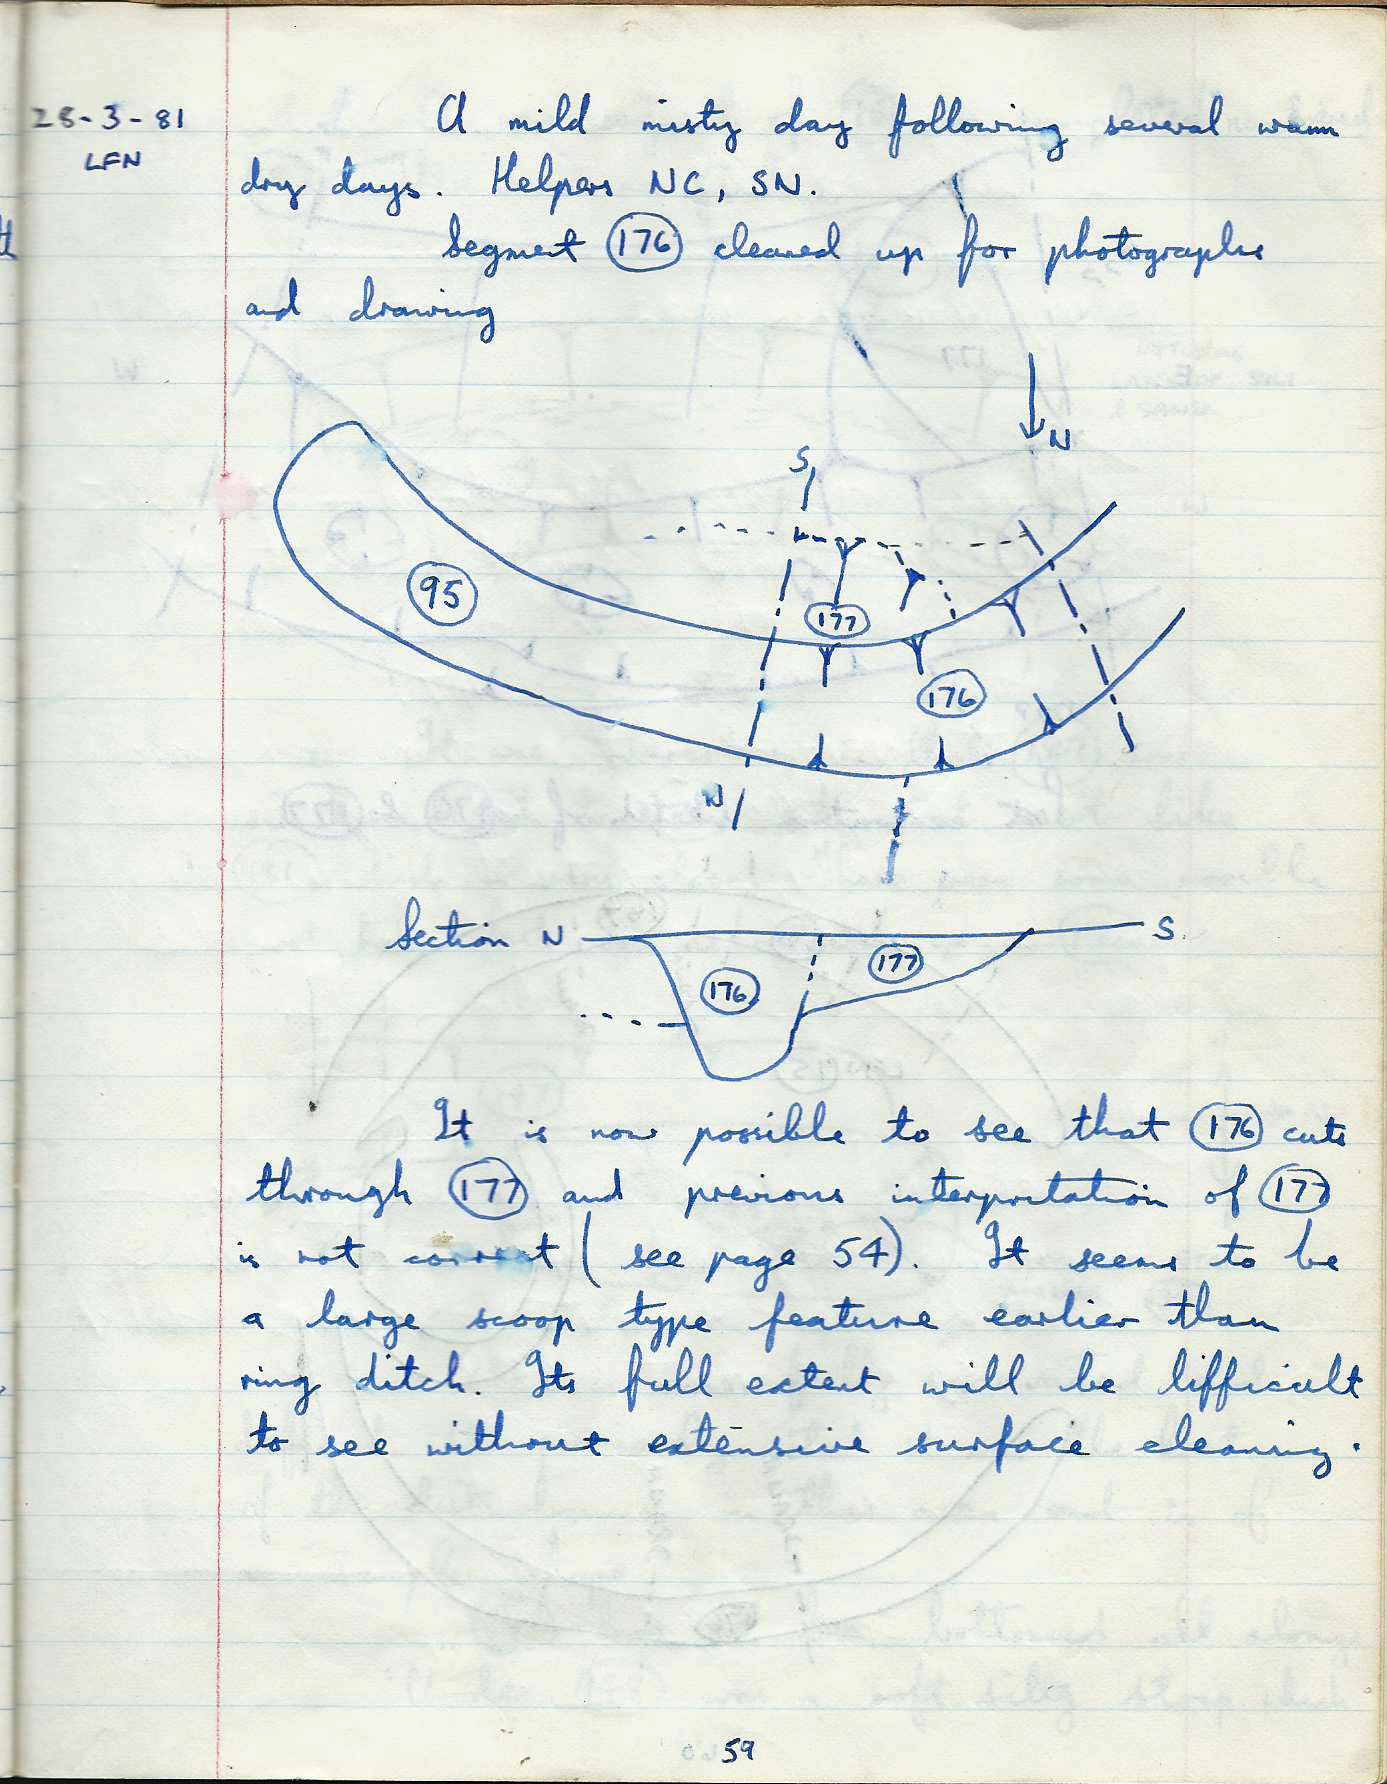 28-3-81
LFN
A mild misty day following several warm
dry days. Helpers NC, SN.
Segment 176 cleaned up for photographs
and drawing
N
S
95
177
176
N
Section N S
176 177
It is now possible to see that 176 cuts
through 177 and previous interpretation of 177
is not correct (see page 54). It seems to be
a large scoop type feature earlier than
ring ditch. Its full extent will be difficult
to see without extensive surface cleaning.
59